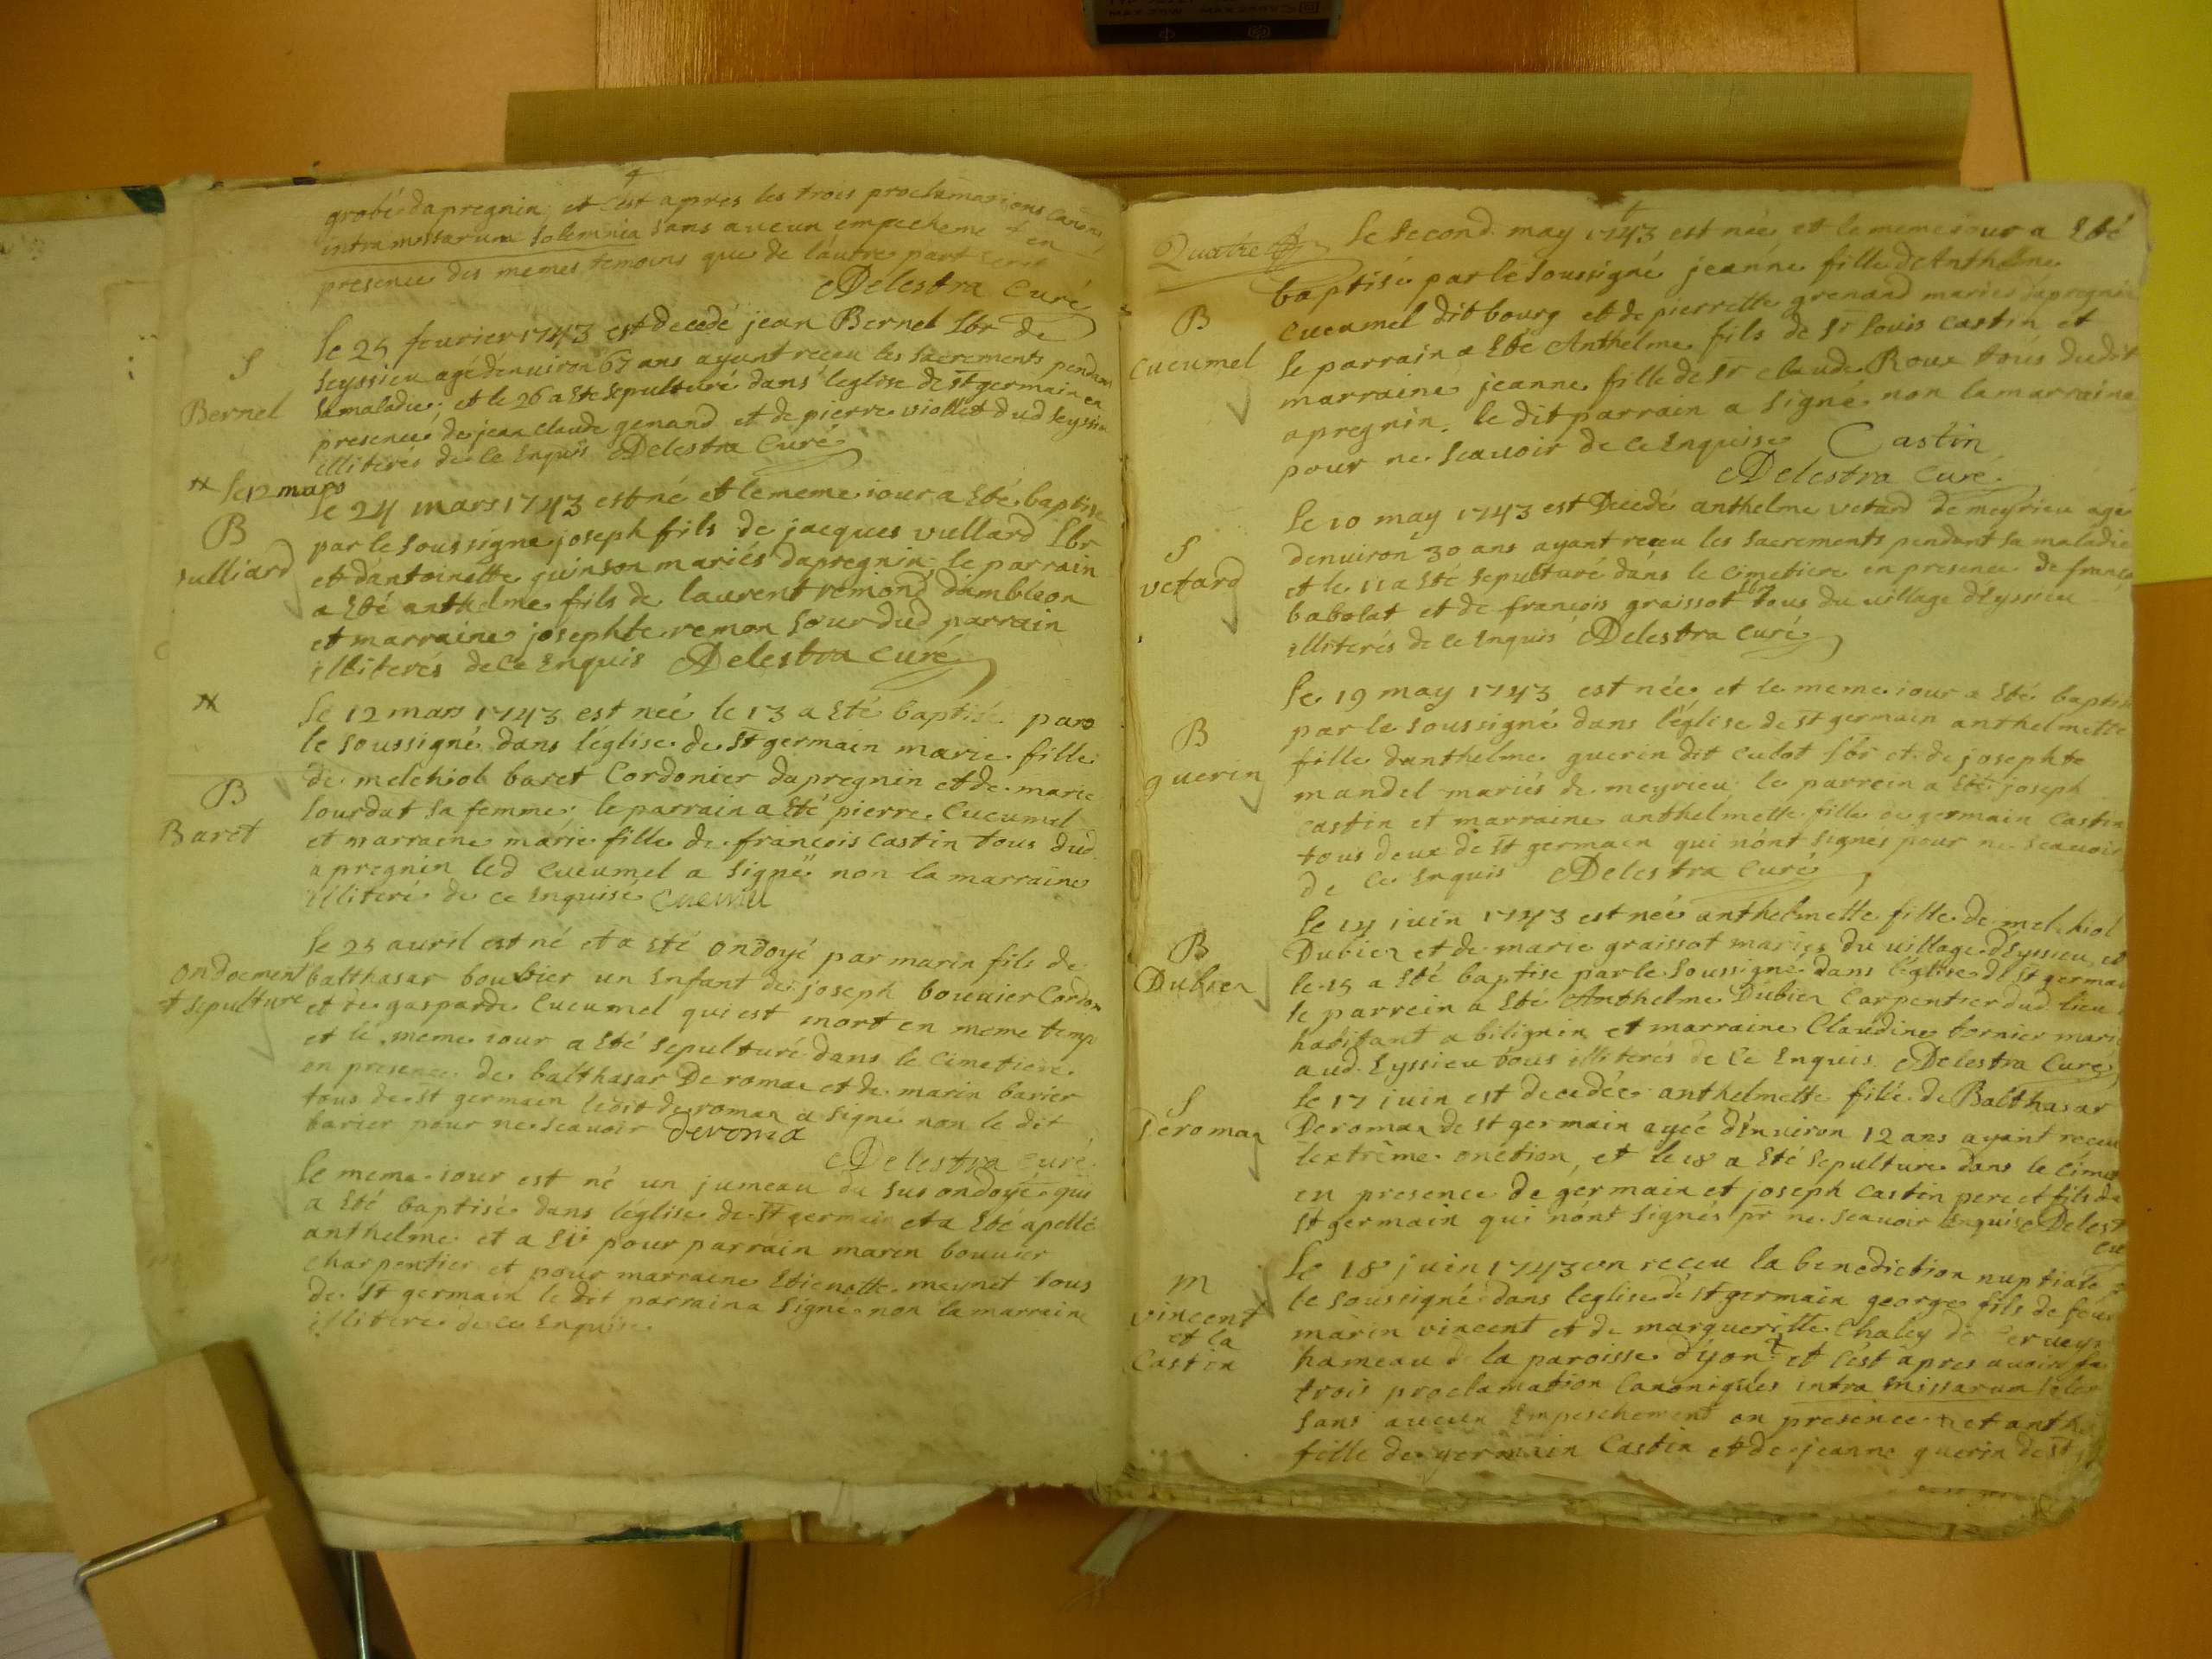 grobé dapregnin, et c'est apres les trois proclamations canoni
intra missarum solemnia sans aucun empecheme et en
presence des memes temoins que de l'autre part
Delestra Curé
S
Bernel
le 25 feurier 1743 est decedé jean Bernel lbr de
seyssieu agé d'enuiron 67 ans ayant receu les sacrements pendant
sa maladie, et le 26 a eté sepulturé dans l'eglise de st germain en
presence de jean claude genand et de pierre viollet dud seyssieu
illiterés de ce enquis Delestra Curé
le 12 mars
B
vulliard
le 24 mars 1743 est né et le meme iour a eté baptisé
par le soussigné joseph fils de jacques vullard lbr
et d'antoinette guinson mariés dapregnin, le parrain
a eté anthelme fils de laurent remond d'ambléon
et marraine josephte remon sour dud parrain
illiterés de ce enquis Delestra Curé
B
Baret
le 12 mars 1743 est neé le 13 a eté baptisé par
le soussigné dans l'église de st germain marie fille
de melchiol baret Cordonier dapregnin et de marie
sourdat sa femme, le parrain a eté pierre Cucumel
et marraine marie fille de francois castin tous dud
apregnin led Cucumel a signé non la marraine
illiteré de ce enquise Cucumel
ondoement
et sepulture
le 25 auril est né et a eté ondoyé par marin fils de
balthasar bouvier un enfant de joseph bouuier Cordon
et de gasparde Cucumel qui est mort en meme temp
et le meme iour a eté sepulturé dans le Cimetiere
en presence de balthasar De roman et de marin barier
tous de st germain ledit de roman a signé non le dit
barier pour ne scauoir deroma
Delestra Curé
le meme iour est né un jumeau du sus ondoyé qui
a eté baptisé dans l'église de st germain et a eté apellé
anthelme et a eu pour parrain marin bouuier
charpentier et pour marraine Etienette meynet tous
de st germain le dit parrain a signé non la marraine
illiteré de ce enquise
Quatre
B
Cucumel
le second may 1743 est née et le meme iour a eté
baptisé par le soussigné jeanne fille d'Anthelme
Cucumel dit bourg et de pierrette grenand mariés dapregnin
le parrain a eté Anthelme fils de sr louis castin et
marraine jeanne fille de sr claude Roux tous dudit
apregnin. le dit parrain a signé non la marraine
pour ne scauoir de ce enquise Castin
Delestra Curé
S
vetard
le 10 may 1743 est Decedé anthelme vetard de meyrieu agé
denuiron 30 ans ayant receu les sacrements pendant sa maladie
et le 11 a eté sepulturé dans le cimetiere en presence de franco
babolat et de francois graissot lbr tous du village d'Eyssieu
illiterés de ce enquis Delestra Curé
B
guerin
le 19 may 1743 est née et le meme iour a eté baptisé
par le soussigné dans l'église de st germain anthelmette
fille danthelme guerin dit culot lbr et de josephte
mandel mariés de meyrieu, le parrein a eté joseph
castin et marraine anthelmette fille de germain Castin
tous deux de st germain qui n'ont signés pour ne scauoir
de ce enquis Delestra Curé
B
Dubier
le 14 iuin 1743 est née anthelmette fille de melchiol
Dubier et de marie graissot mariés du village d'Eyssieu et
le 15 a eté baptise par le soussigné dans l'église de st germai
le parrein a eté Anthelme Dubier Carpentier dud lieu
habitant a bilignin et marraine Claudine bornier marié
aud. Eyssieu tous illiterés de ce enquis. Delestra Curé
S
Deroman
le 17 iuin est decedée anthelmette fille de Balthasar
Deroman de st germain ageé d'enuiron 12 ans ayant receu
l'extrême onction, et le 18 a eté sepulturé dans le cimet
en presence de germain et joseph castin pere et fils de
st germain qui n'ont signés pr ne scauoir enquise Delest
cu
m
vincent
et la
Castin
le 18 juin 1743 on receu la benediction nuptiale
le soussigné dans l'eglise de st germain george fils de feu
marin vincent et de margueritte Chaley de
hameau de la paroisse d'yon et c'est apres auoir fa
trois proclamation Canoniques intra missarum soler
sans aucun empeschement en presence et anth
fille de germain Castin et de jeanne guerin de st